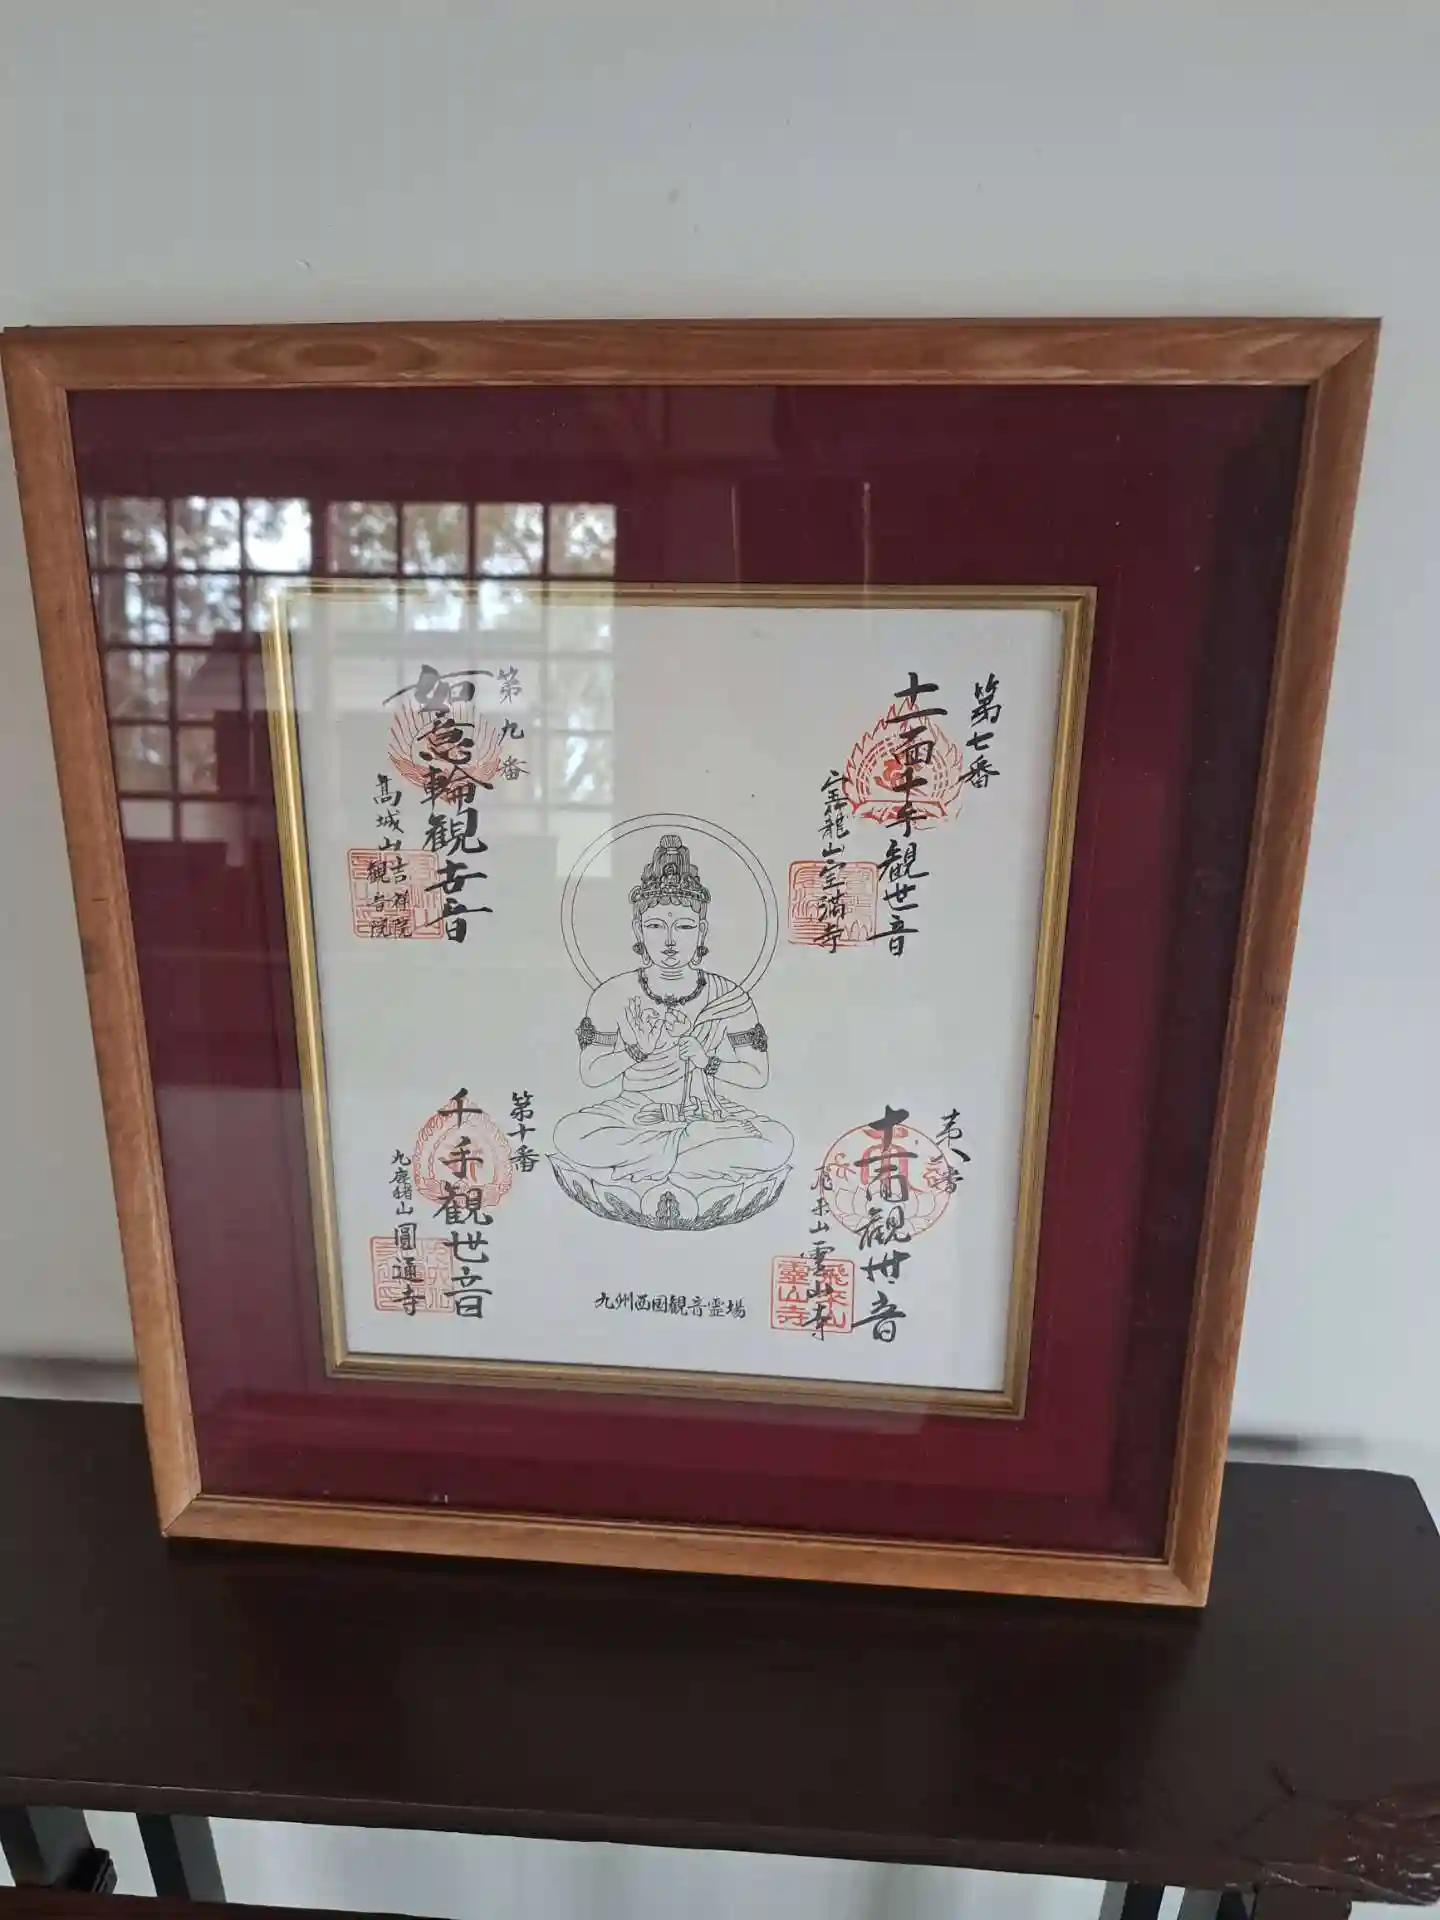 第七番
十一面千手観世音
宝龍山宝満寺
第八番
十一面観世音
飛来山霊山寺
飛来山
靈山寺
第九番
如意輪観世音
高城山吉祥院
観音院
第十番
千手観世音
九鹿猪山圓通寺
九州西国観音霊場